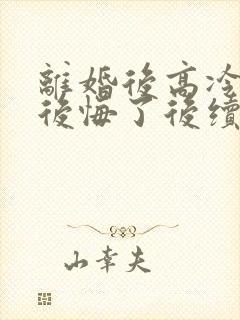 離婚後高冷
後悔了後續
山幸夫